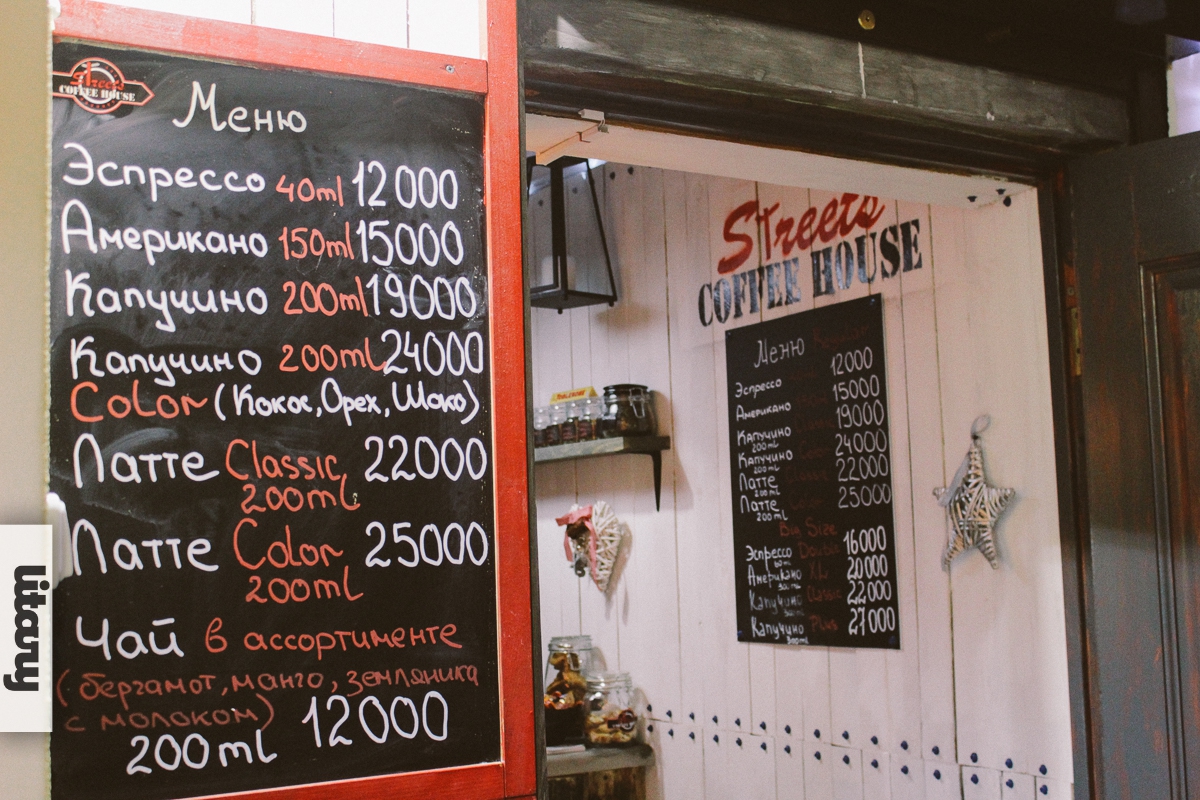 Streets
COFFEE HOUSE
Меню
Эспрессо 40ml 12000
Американо 150ml 15000
Капучино 200ml 19000
Капучино 200ml 24000
Color (Кокос, Орех, Шоко)
Латте Classic 22000
200ml
Латте Color 25000
200ml
Чай в ассортименте
(бергамот, манго, земляника
с молоком) 12000
200ml
litavy
Streets
COFFEE HOUSE
Меню
Эспрессо 12000
Американо 15000
Капучино 19000
200ml
Капучино 24000
200ml
Латте 22000
200ml
Латте 25000
200ml
Big Size
Эспрессо Double 16000
Американо XL 20000
Капучино Classic 22000
Капучино Plus 27000
300ml